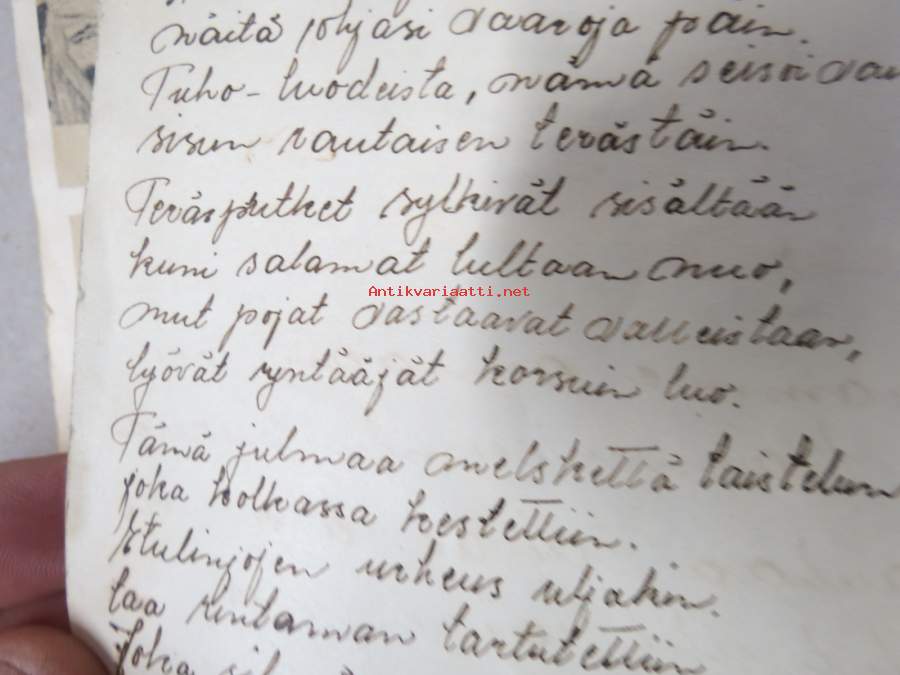 näitä pohjasi vaaroja päin.
Tuho-luodeista, nämä seisoi
sisun rautaisen terästäin.
Teräsputket sylkivät sisältään
kuni salamat tultaan nuo,
Antikvariaatti.net
mut pojat vastaavat
lyövät ryntääjät korsuin luo.
Tämä julmaa melskettä taistelun
joka kolkassa kestettiin.
Etulinjojen urheus uljahin.
taa rintaman tartutettiin
Joka